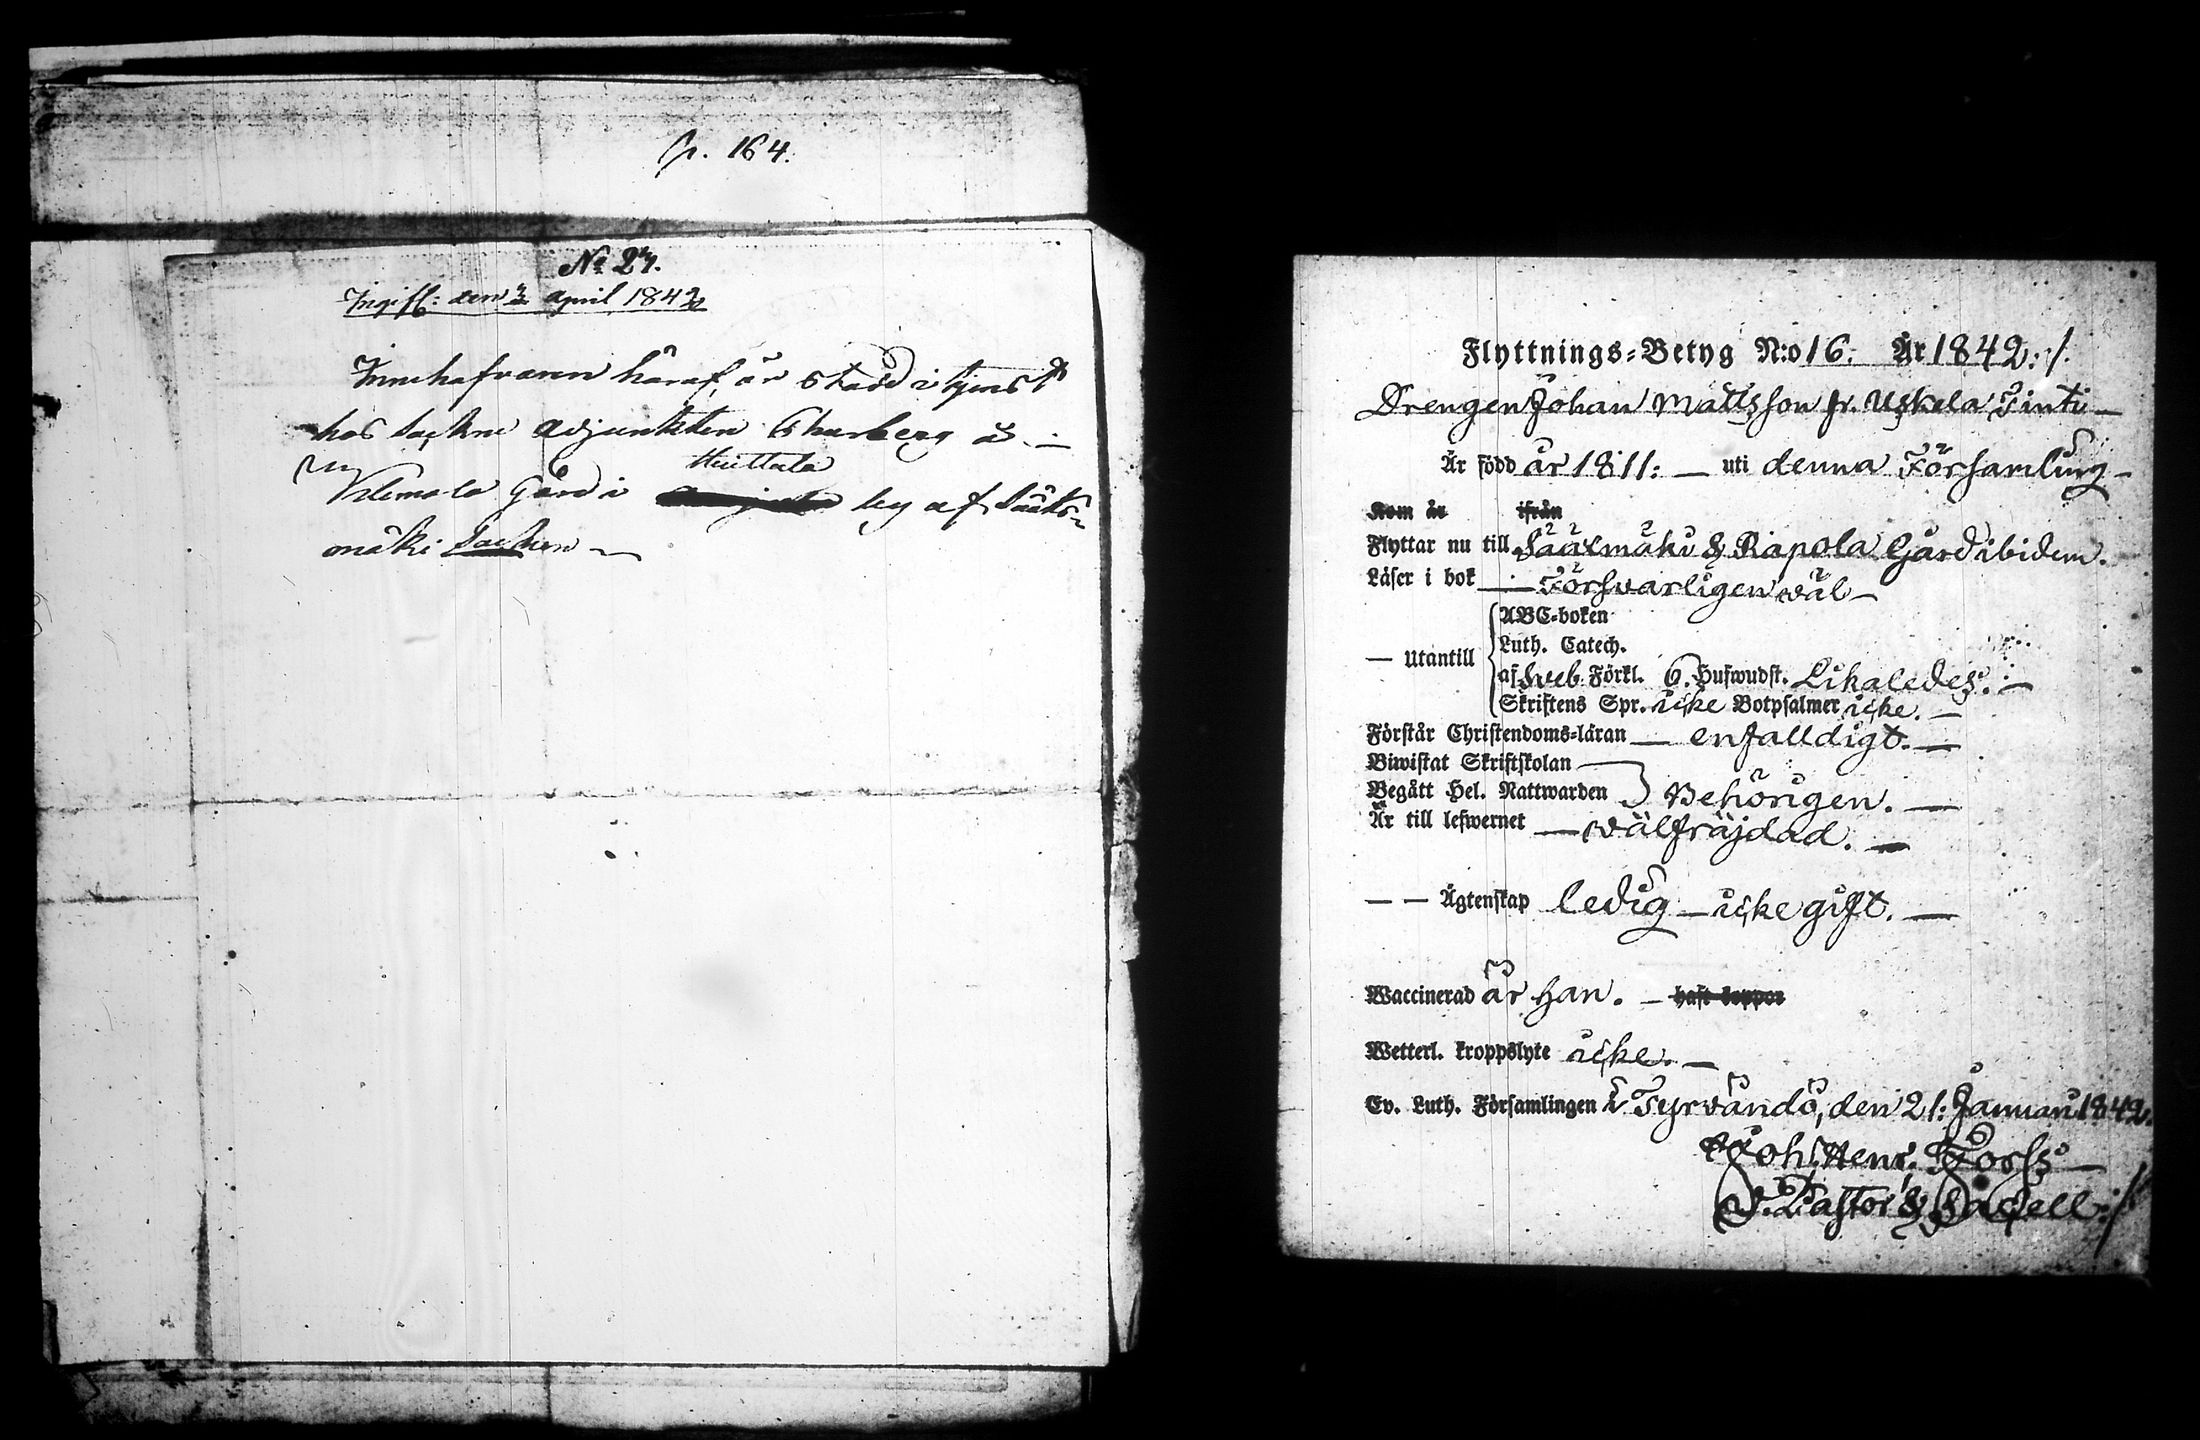 p. 164.
No 27.
Ingifl: den 3 April 1842
Innehafvaren häraf, är stadd i tjenst
hos Sockne adjunkten Charberg å
Huittula
Uilemala Gård i by af Sääks-
mäki Socken
Flyttnings-Betyg N:o 16. År 1842. ./.
Drengen Johan Mattsson fr. Uskela Tinti
Är född år 1811: — uti denna Församling —
Kom år ifrån
Flyttar nu till Sääxmäki & Rapola Gård ibidem.
Läser i bok — Försvarligen wäl —
ABC-boken
Luth. Catech.
— Utantill
af Sveb. Förkl. 6. Hufwudst. Likaledes. —
Skriftens Spr. icke Botpsalmer icke. —
Förstår Christendoms-läran — enfaldigt. —
Biwistat Skriftskolan
Begått Hel. Nattwarden Behörigen. —
Är till lefwernet — wälfräjdad. —
— — Ägtenskap ledig — icke gift. —
Waccinerad är han. — haft koppor
Wetterl. kroppslyte icke. —
Ev. Luth. Församlingen i Tyrvändö, den 21: Januari 1842.
Joh. Henr. Forss —
V. Pastor & Sacell: ./.